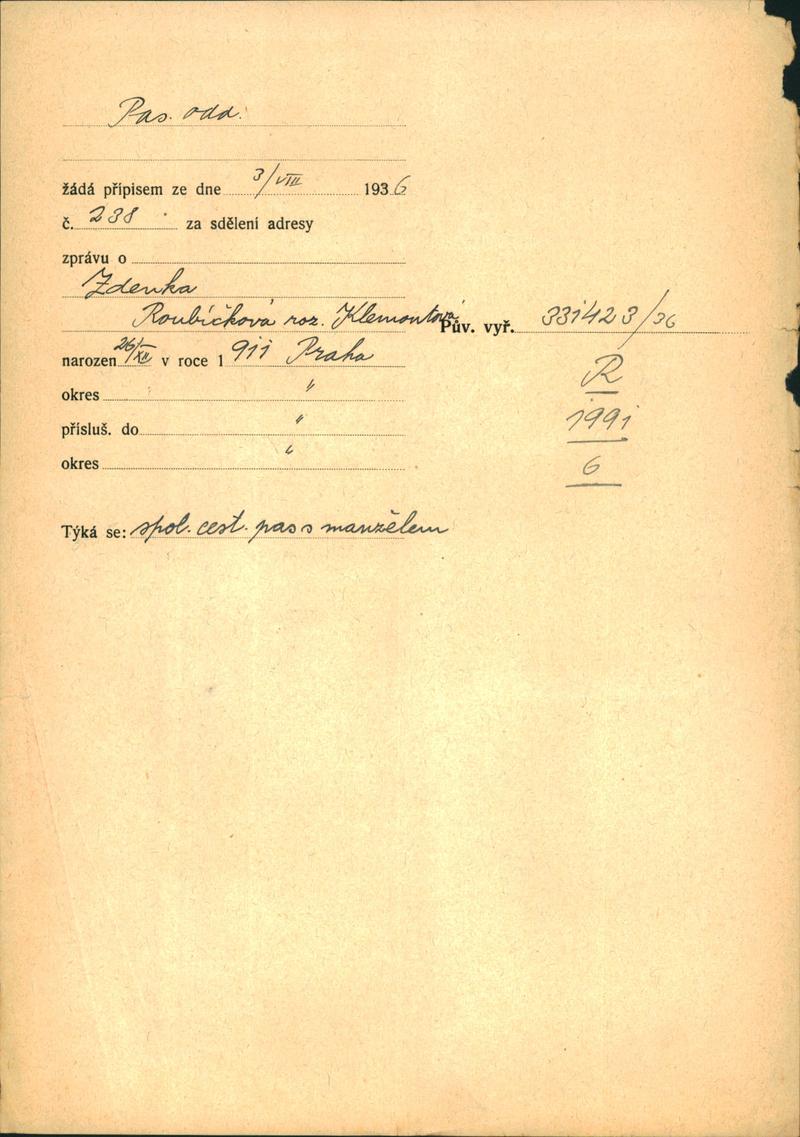 Pas. odd.
žádá přípisem ze dne 3/VIII 1936
č. 238 za sdělení adresy
zprávu o
Zdenka
Roubíčková roz. Klemontová
Pův. vyř. 331423/36
narozen 26/XII v roce 1911 Praha
R
okres "
1991
přísluš. do "
okres "
6
Týká se: spol. cest. pas s manželem